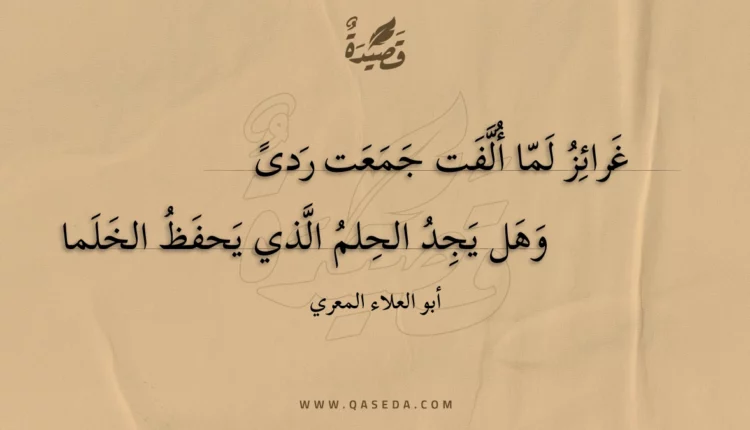 قَصِيدَةٌ
غَرائِزُ لَمّا أُلَّفَت جَمَعَت رَدىً
وَهَل يَجِدُ الحِلمُ الَّذي يَحفَظُ الخَلَما
أبو العلاء المعري
WWW.QASEDA.COM